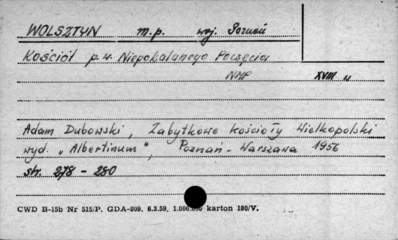 WOLSZTYN m.p. woj. Poznań
Kościół p.w. Niepokalanego Poczęcia
NMP XVIII w
Adam Dubowski, Zabytkowe kościoły Wielkopolski
wyd. „Albertinum", Poznań - Warszawa 1956
str. 278 - 280
CWD B-15b Nr 515/P. GDA-809. 6.3.59. 1.000.000 karton 180/V.